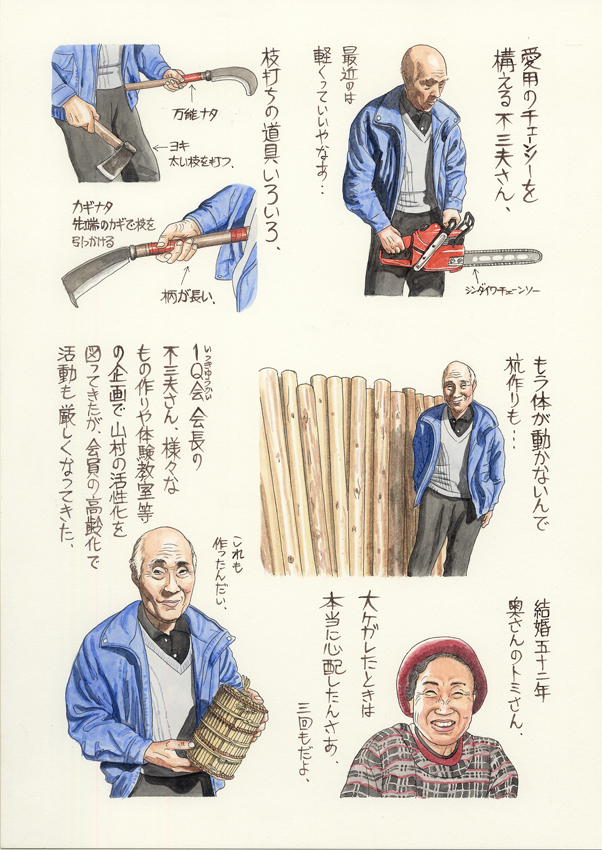 愛用のチェーンソーを
構える不三夫さん、
最近のは
軽くっていいやなあ…
シンダイワチェーンソー
枝打ちの道具いろいろ、
万能ナタ
ヨキ
太い枝を打つ、
カギナタ
先端のカギで枝を
引っかける
柄が長い、
もう体が動かないんで
杭作りも…
いっきゅうかい
1Q会会長の
不三夫さん、様々な
もの作りや体験教室等
の企画で山村の活性化を
図ってきたが、会員の高齢化で
活動も厳しくなってきた、
これも
作ったんだい、
結婚五十二年
奥さんのトミさん、
大ケガしたときは
本当に心配したんさあ、
三回もだよ、